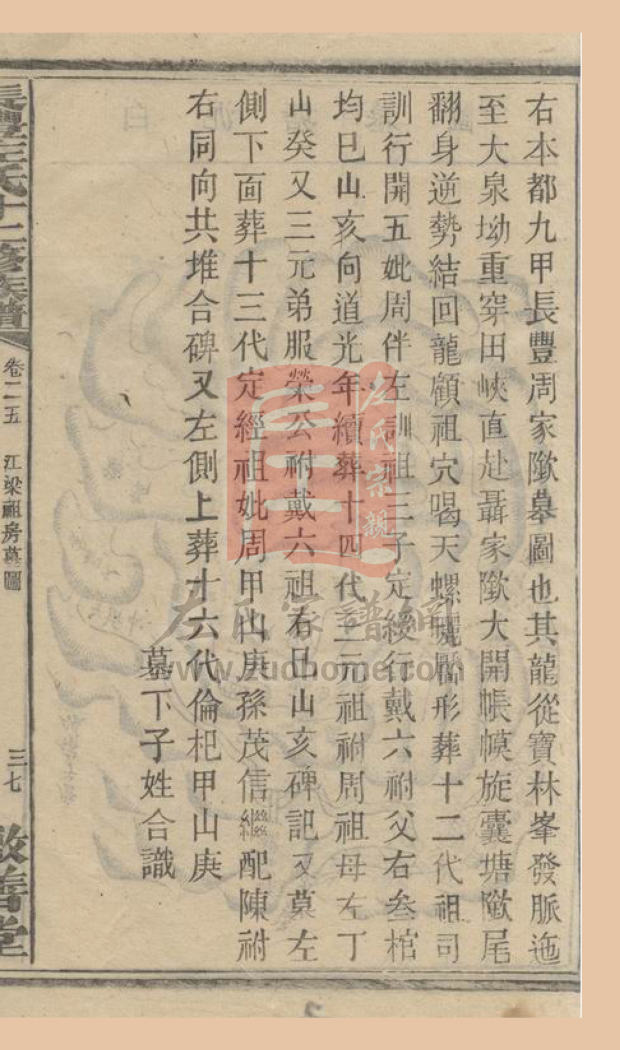 右本都九甲長豐周家墩墓圖也其龍從寶林峯發脈迤
至大泉坳重穿田峽直赴聶家墩大開帳幙旋囊塘墩尾
翻身逆勢結回龍顧祖穴喝天螺曬形葬十二代祖司
訓行開五妣周伴左訓祖三子定綬行戴六祔父右叁棺
均巳山亥向道光年續葬十四代三元祖祔周祖母左丁
山癸又三元弟服榮公祔戴六祖右巳山亥碑記又墓左
側下面葬十三代定經祖妣周甲山庚孫茂信繼配陳祔
右同向共堆合碑又左側上葬十六代倫杞甲山庚
墓下子姓合識
長豐左氏十二修族譜
卷二五
江梁祖房墓圖
三七
敦善堂
左氏宗親
左氏家譜網
www.zuohome.com